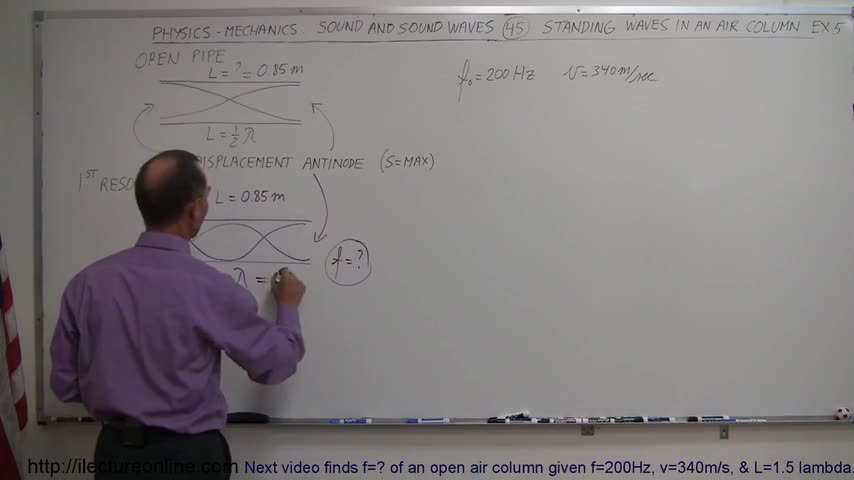 PHYSICS - MECHANICS: SOUND AND SOUND WAVES (45) STANDING WAVES IN AN AIR COLUMN EX. 5
OPEN PIPE
L = ? = 0.85 m
f₀ = 200 Hz v = 340 m/sec
L = ½ λ
DISPLACEMENT ANTINODE (S=MAX)
1ST
L = 0.85 m
f = ?
λ =
http://ilectureonline.com Next video finds f=? of an open air column given f=200Hz, v=340m/s, & L=1.5 lambda.